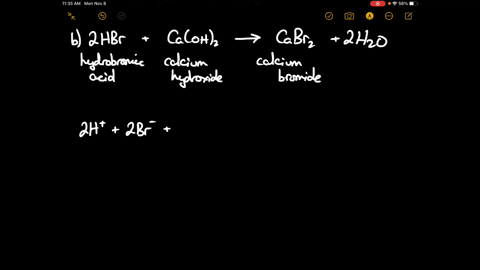 11:35 AM Mon Nov 8
56%
b) 2HBr + Ca(OH)₂ → CaBr₂ + 2H₂O
hydrobromic calcium calcium
acid hydroxide bromide
2H⁺ + 2Br⁻ +